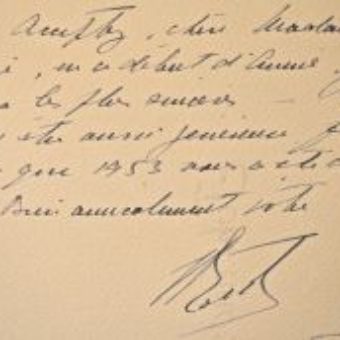 Acceptez, chère Madame
, en ce début d'année
les plus sincères
être aussi généreuse
que 1953 vous a été
Bien amicalement votre